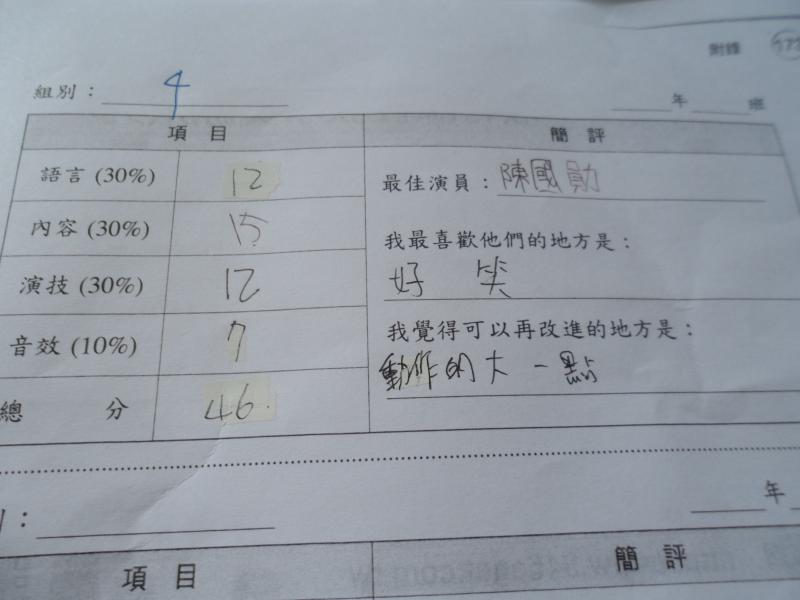 附錄
組別： 4
年 班
項 目 簡 評
語言 (30%) 12
最佳演員：陳國勛
內容 (30%) 15
我最喜歡他們的地方是：
演技 (30%) 12
好 笑
音效 (10%) 7
我覺得可以再改進的地方是：
動作的大一點
總 分 46
年
項 目 簡 評